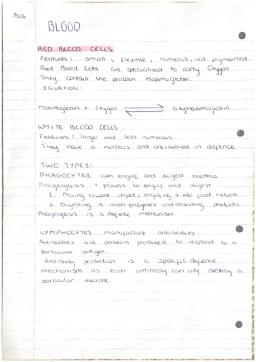 BLOOD
RED BLOOD CELLS
Features: small, flexible, numerous, red pigmented
Red Blood Cells are specialised to carry Oxygen
They contain the protein Haemoglobin.
EQUATION:
Haemoglobin + Oxygen ⇌ Oxyhaemoglobin
WHITE BLOOD CELLS
Features: larger and less numerous
They have a nucleus and are involved in defence
TWO TYPES:
PHAGOCYTES: can engulf and digest bacteria.
Phagocytosis = process to engulf and digest
1. Moving toward objects, engulfing it into food vacuole
2. Digesting it with enzymes and absorbing products
Phagocytosis is a defence mechanism
LYMPHOCYTES: manufacture antibodies.
Antibodies are proteins produced to respond to a
particular antigen.
Antibody production is a specific defence
mechanism as each antibody can only destroy a
particular microbe